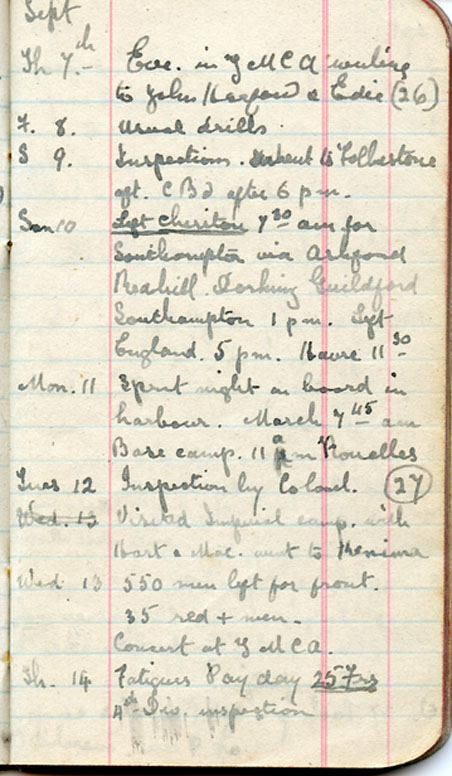 Sept
Th 7th Eve. in YMCA writing
to John Harford & Edie (26)
F. 8. Usual drills
S 9. Inspections. Went to Folkestone
aft. CBd after 6 pm.
Sun 10 Left Cheriton 7 30 am for
Southampton via Ashford
Redhill Dorking Guildford
Southampton 1 pm. Left
England. 5 pm. Havre 11 30
Mon. 11 Spent night on board in
harbour. March 7 45 am
Base camp. 11 am
Tues 12 Inspection by Colonel. (27)
Wed. 13 Visited Imperial camp. with
Hart & Mac. went to Kenima
Wed 13 550 men left for front.
35 red + men.
Concert at YMCA.
Th. 14 Fatigues Pay day 25 Frs
4th Div. inspection